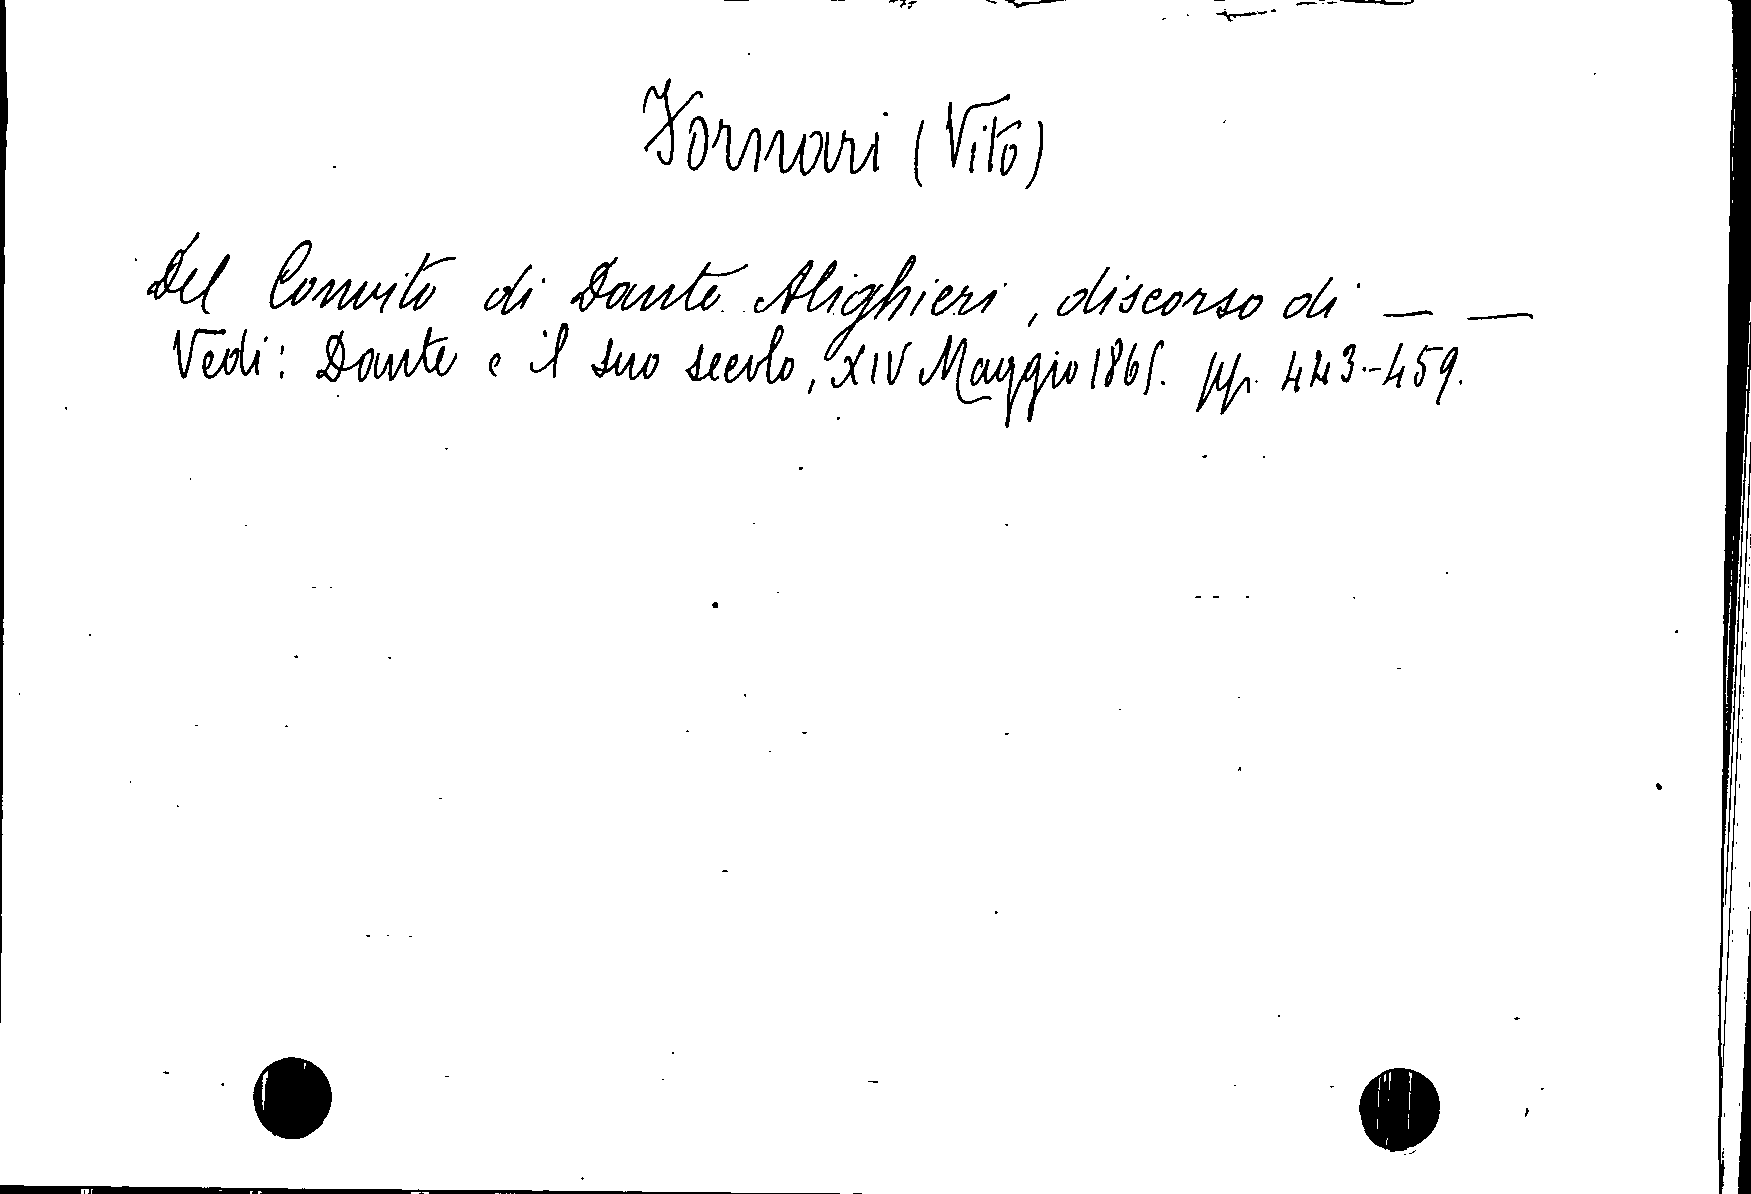 Fornari (Vito)
Del Convito di Dante Alighieri, discorso di — —
Vedi: Dante e il suo secolo, XIV Maggio 1865. pp. 443-459.